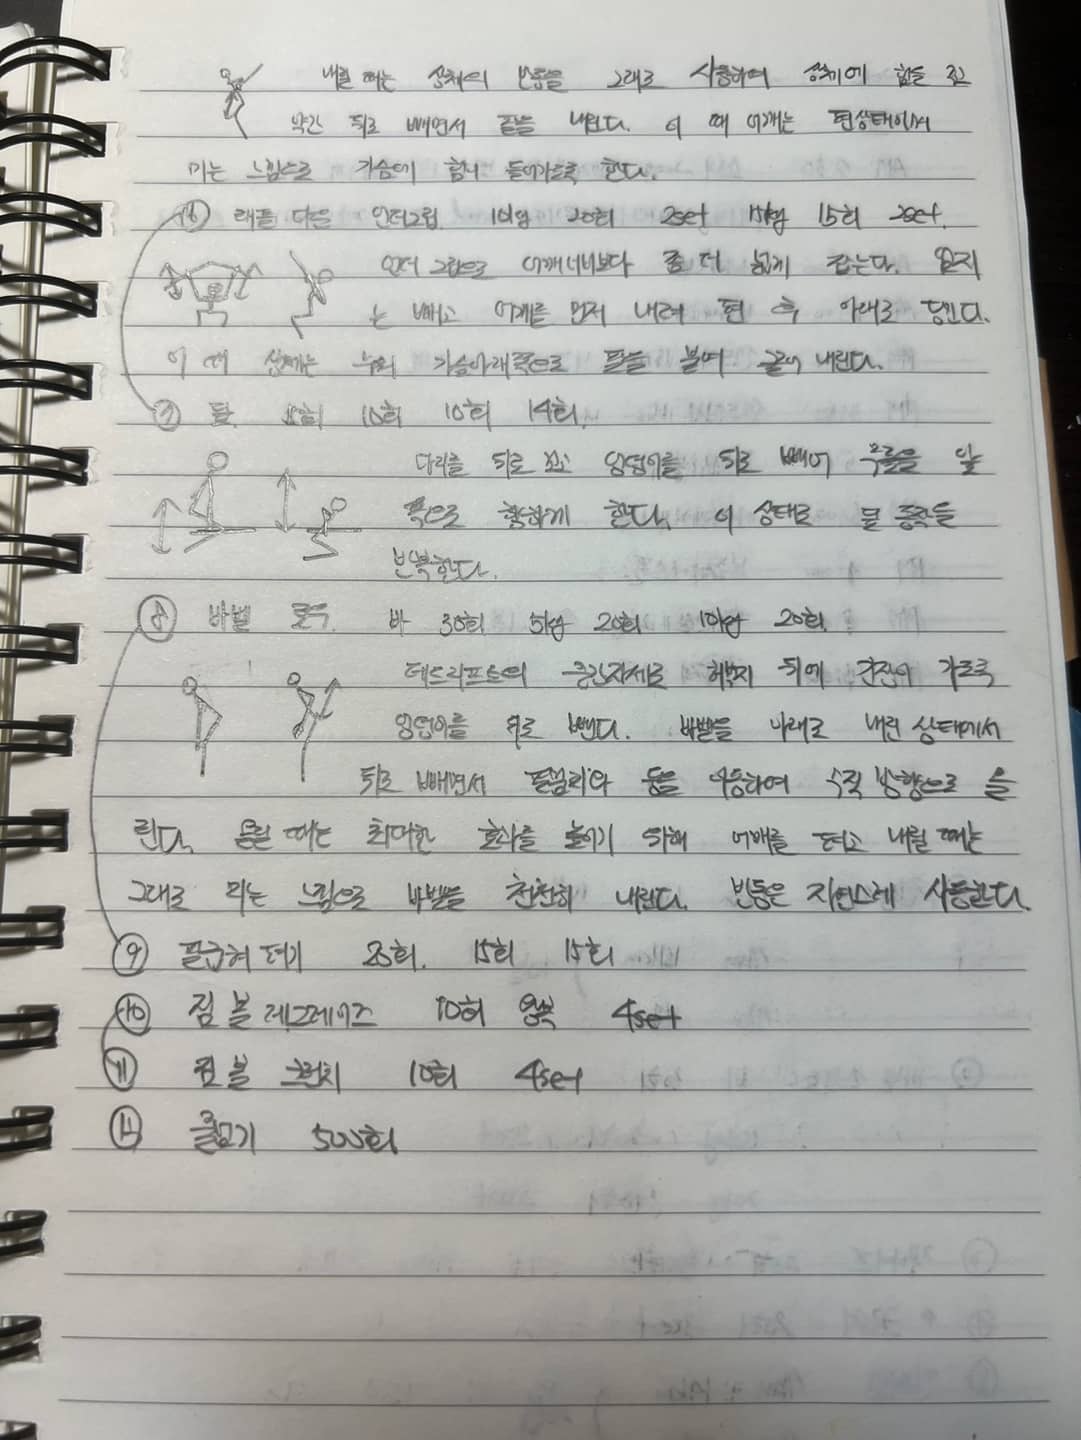 내릴 때는 상체의 반동을 그대로 사용하여 상체에 힘을 준
약간 뒤로 빼면서 팔을 내린다. 이 때 어깨는 편상태에서
미는 느낌으로 가슴에 힘이 들어가도록 한다.
⑥ 래풀 다운 언더그립 10kg 20회 2set 15kg 15회 2set.
언더 그립으로 어깨너비보다 좀 더 넓게 잡는다. 엄지
는 빼고 어깨를 먼저 내려 편 후 아래로 당긴다.
이 때 상체는 누워 가슴아래쪽으로 팔을 붙여 끌어 내린다.
⑦ 딥 10회 10회 14회
다리를 뒤로 꼬고 엉덩이를 뒤로 빼어 무릎을 앞
쪽으로 향하게 한다. 이 상태로 동작을
반복한다.
⑧ 바벨 로우 바 30회 5kg 20회 10kg 20회.
데드리프트의 중간자세로 허벅지 뒤에 긴장이 가도록
엉덩이를 뒤로 뺀다. 바벨을 아래로 내린 상태에서
뒤로 빼면서 팔꿈치와 등을 이용하여 수직 방향으로 올
린다. 올릴 때는 최대한 효과를 높이기 위해 어깨를 펴고 내릴 때는
그대로 미는 느낌으로 바벨을 천천히 내린다. 반동은 자연스레 사용한다.
⑨ 팔굽혀 펴기 20회. 15회 15회
⑩ 짐볼 레그레이즈 10회 왕복 4set
⑪ 짐볼 크런치 10회 4set
⑫ 줄넘기 500회